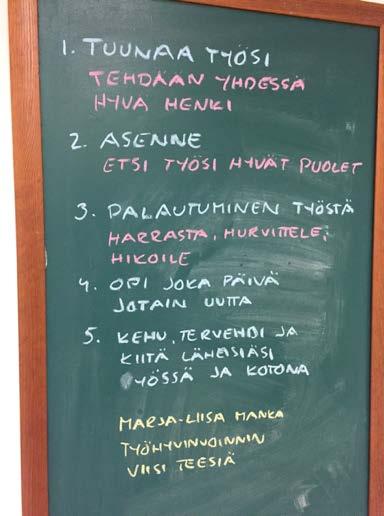 1. TUUNAA TYÖSI
TEHDÄÄN YHDESSÄ
HYVÄ HENKI
2. ASENNE
ETSI TYÖSI HYVÄT PUOLET
3. PALAUTUMINEN TYÖSTÄ
HARRASTA, HURVITTELE,
HIKOILE
4. OPI JOKA PÄIVÄ
JOTAIN UUTTA
5. KEHU, TERVEHDI JA
KIITÄ LÄHEISIÄSI
TYÖSSÄ JA KOTONA
MARJA-LIISA MANKA
TYÖHYVINVOINNIN
VIISI TEESIÄ